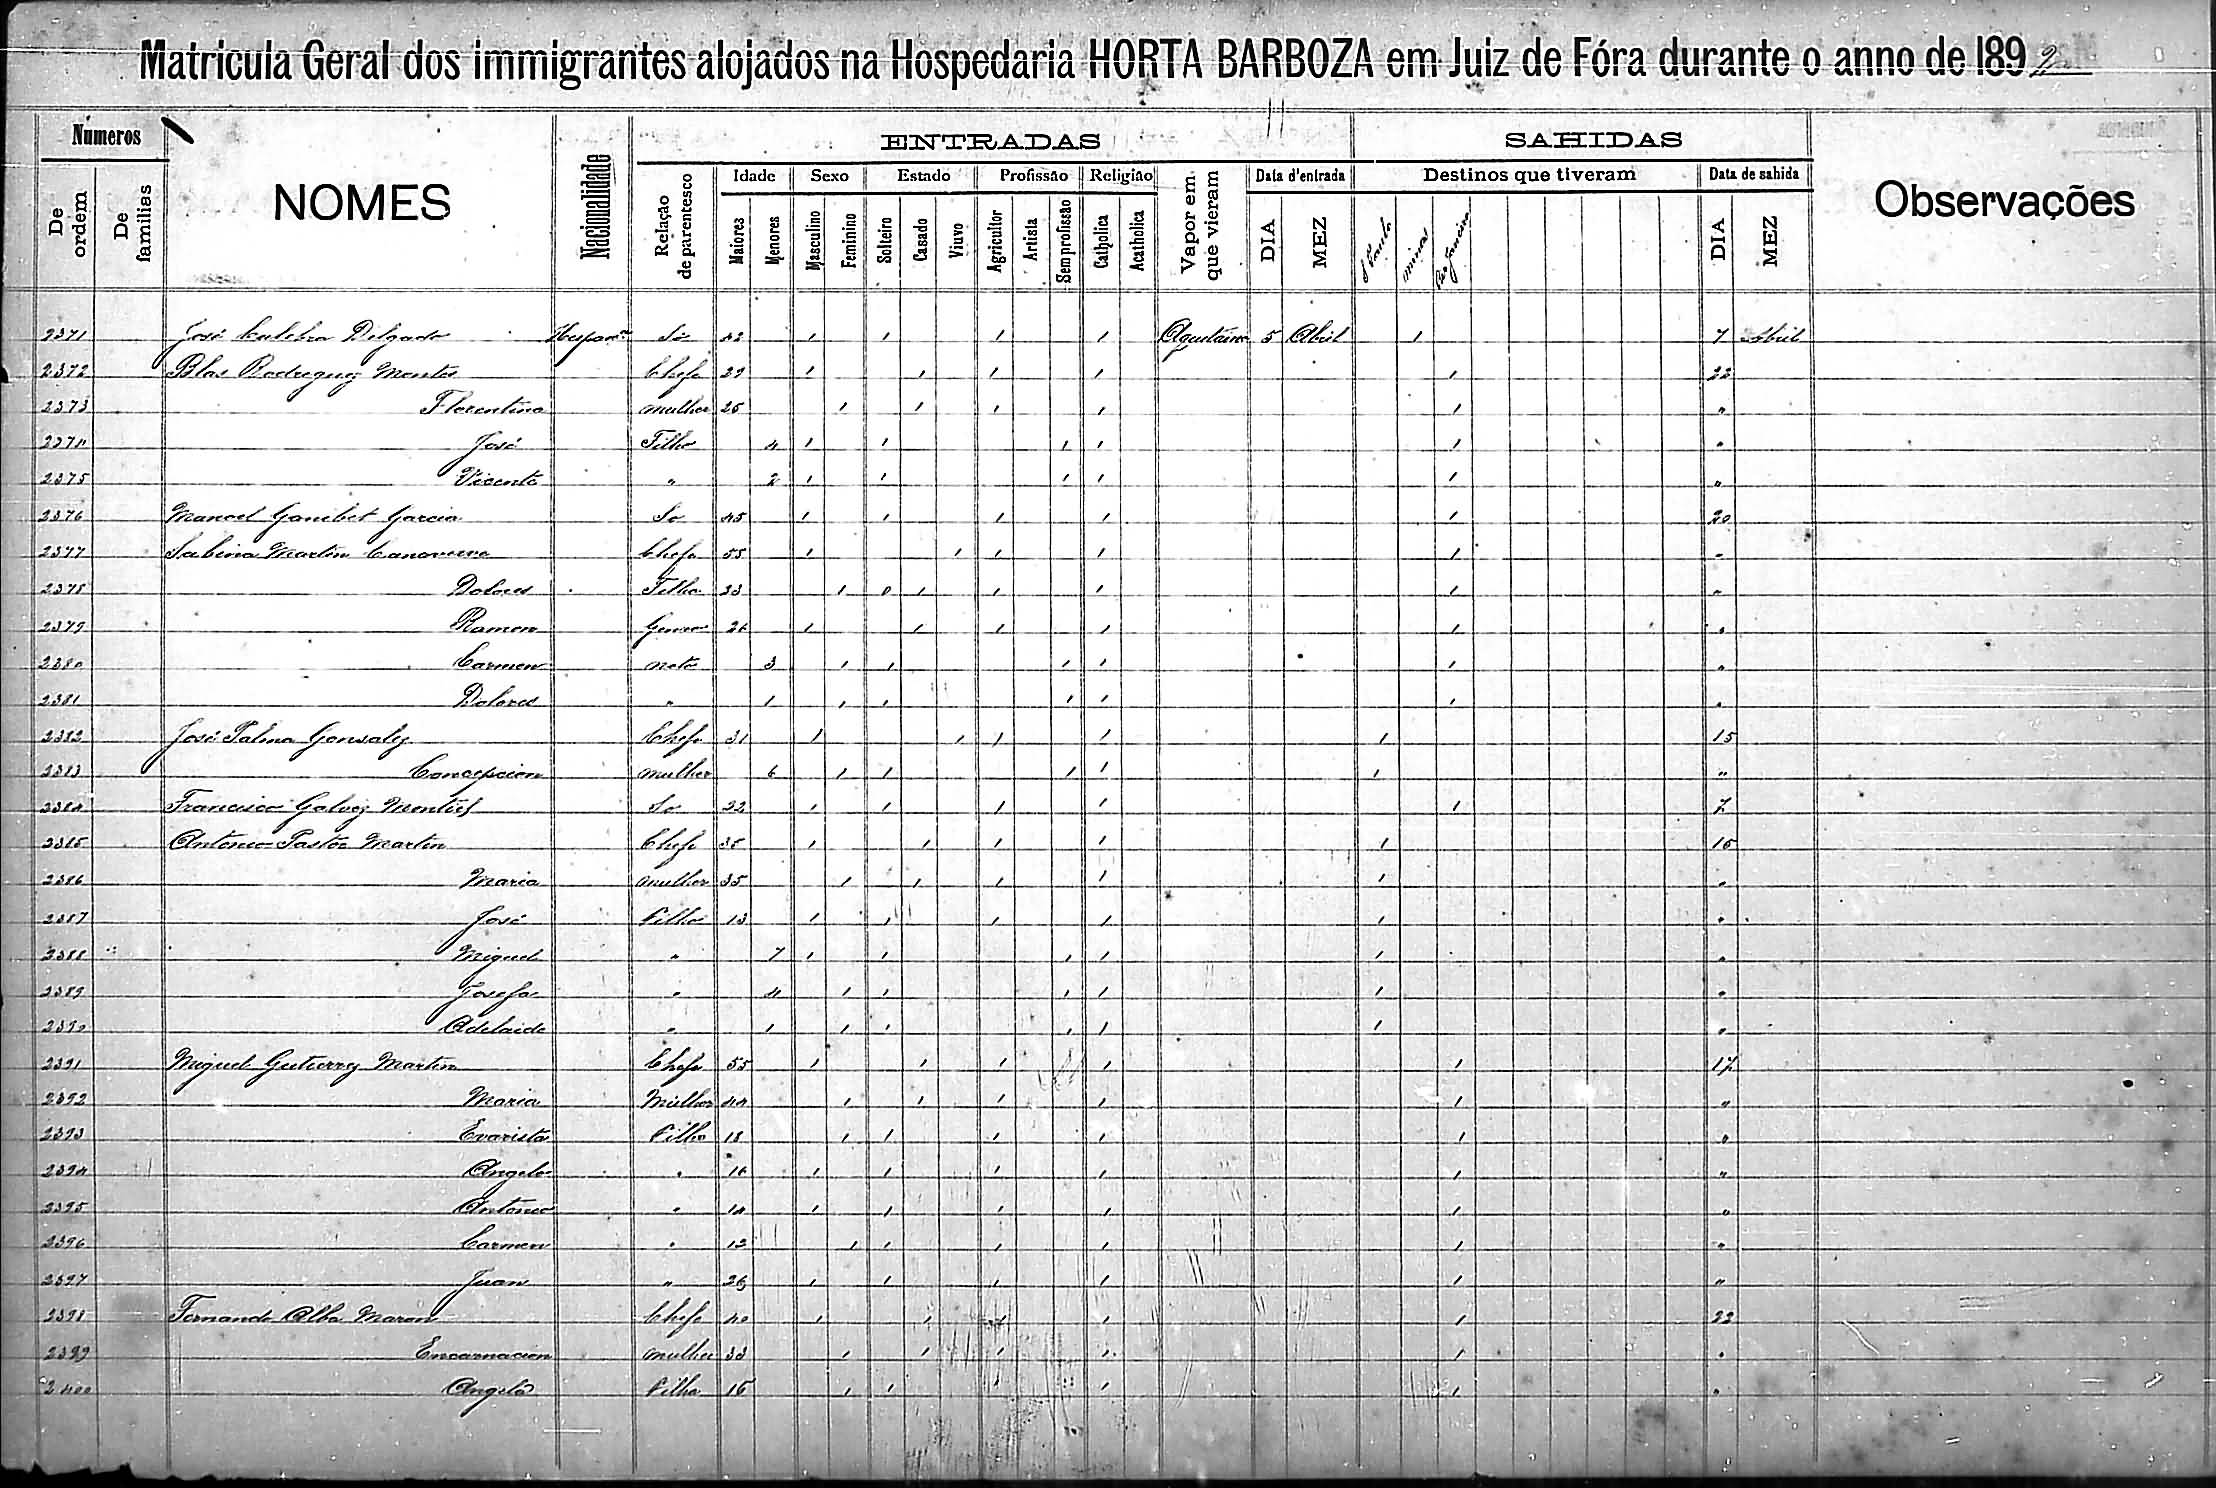 Matricula Geral dos immigrantes alojados na Hospedaria HORTA BARBOZA em Juiz de Fóra durante o anno de 1892
Numeros ENTRADAS SAHIDAS
De ordem De familias NOMES Nacionalidade Relação de parentesco Idade Sexo Estado Profissão Religião Vapor em que vieram Data d'entrada Destinos que tiveram Data de sahida Observações
Maiores Menores Masculino Feminino Solteiro Casado Viuvo Agricultor Artista Sem profissão Catholica Acatholica DIA MEZ S. Paulo Minas Rio Janeiro DIA MEZ
2371 José Delgado Só 42 1 1 1 1 Aquitaine 5 Abril 1 7 Abril
2372 Blas Rodriguez Montes Chefe 29 1 1 1 1 1 22
2373 Florentina mulher 25 1 1 1 1 1 "
2374 José Filho 4 1 1 1 1 1 "
2375 Vicente " 2 1 1 1 1 1 "
2376 Manoel Ganibet Garcia So 45 1 1 1 1 1 20
2377 Sabina Martin Chefe 55 1 1 1 1 1 "
2378 Dolores Filha 23 1 0 1 1 1 1 "
2379 Ramon Genro 26 1 1 1 1 1 "
2380 Carmen neta 3 1 1 1 1 1 "
2381 Dolores " 1 1 1 1 1 1 "
2382 José Palma Gonsalez Chefe 31 1 1 1 1 1 15
2383 Concepcion mulher 6 1 1 1 1 1 "
2384 Francisco Galvez Montiel So 22 1 1 1 1 1 7
2385 Antonio Pastor Martin Chefe 35 1 1 1 1 1 15
2386 Maria mulher 35 1 1 1 1 1 "
2387 José Filho 13 1 1 1 1 1 "
2388 Miguel " 7 1 1 1 1 1 "
2389 Josefa " 4 1 1 1 1 1 "
2390 Adelaide " 1 1 1 1 1 1 "
2391 Miguel Gutierrez Martin Chefe 55 1 1 1 1 1 17
2392 Maria Mulher 44 1 1 1 1 1 "
2393 Evarista Filha 18 1 1 1 1 1 "
2394 Angelo " 16 1 1 1 1 1 "
2395 Antonio " 14 1 1 1 1 1 "
2396 Carmen " 12 1 1 1 1 1 "
2397 Juan " 26 1 1 1 1 1 "
2398 Fernando Alba Maron Chefe 40 1 1 1 1 1 22
2399 Encarnacion mulher 33 1 1 1 1 1 "
2400 Angela Filha 15 1 1 1 1 1 "